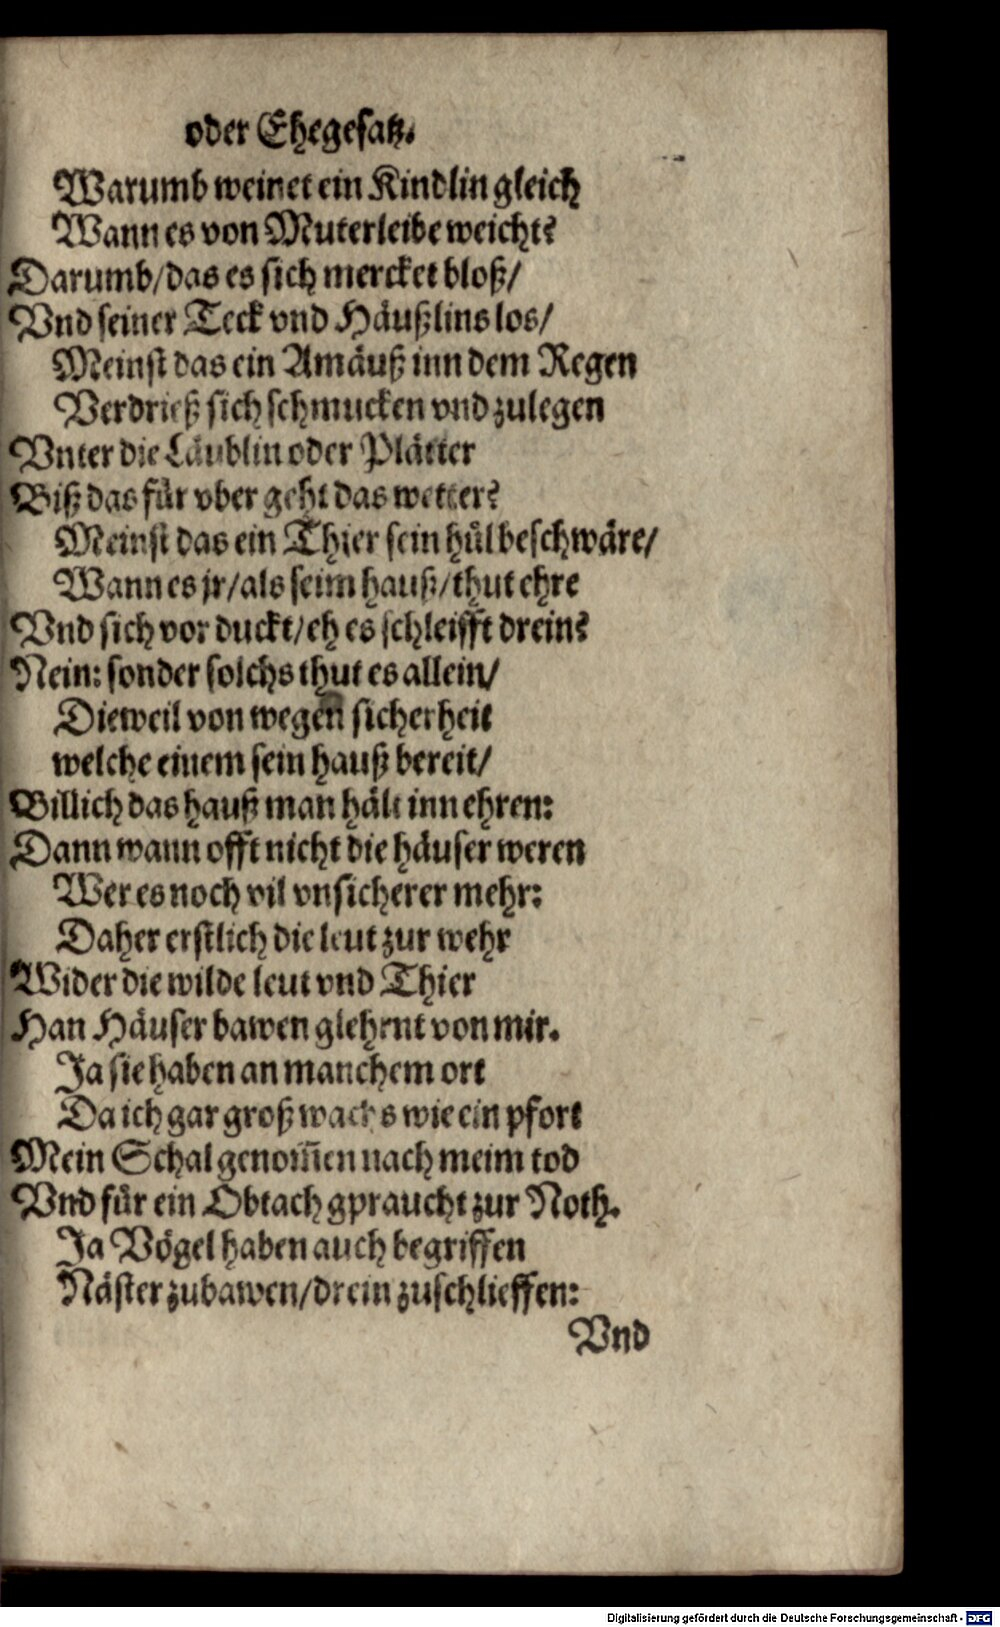 oder Ehegesatz.
Warumb weinet ein Kindlin gleich
Wann es von Muterleibe weicht?
Darumb/das es sich mercket bloß/
Vnd seiner Teck vnd Häußlins los/
Meinst das ein Amäuß inn dem Regen
Verdrieß sich schmucken vnd zulegen
Vnter die Läublin oder Plätter
Biß das für vber geht das wetter?
Meinst das ein Thier sein hül beschwäre/
Wann es jr/als seim hauß/thut ehre
Vnd sich vor duckt/eh es schleifft drein?
Nein: sonder solchs thut es allein/
Dieweil von wegen sicherheit
welche einem sein hauß bereit/
Billich das hauß man hält inn ehren:
Dann wann offt nicht die häuser weren
Wer es noch vil vnsicherer mehr:
Daher erstlich die leut zur wehr
Wider die wilde leut vnd Thier
Han Häuser bawen glehrnt von mir.
Ja sie haben an manchem ort
Da ich gar groß wachs wie ein pfort
Mein Schal genom̃en nach meim tod
Vnd für ein Obtach gpraucht zur Noth.
Ja Vögel haben auch begriffen
Näster zubawen/drein zuschlieffen:
Vnd
Digitalisierung gefördert durch die Deutsche Forschungsgemeinschaft - DFG